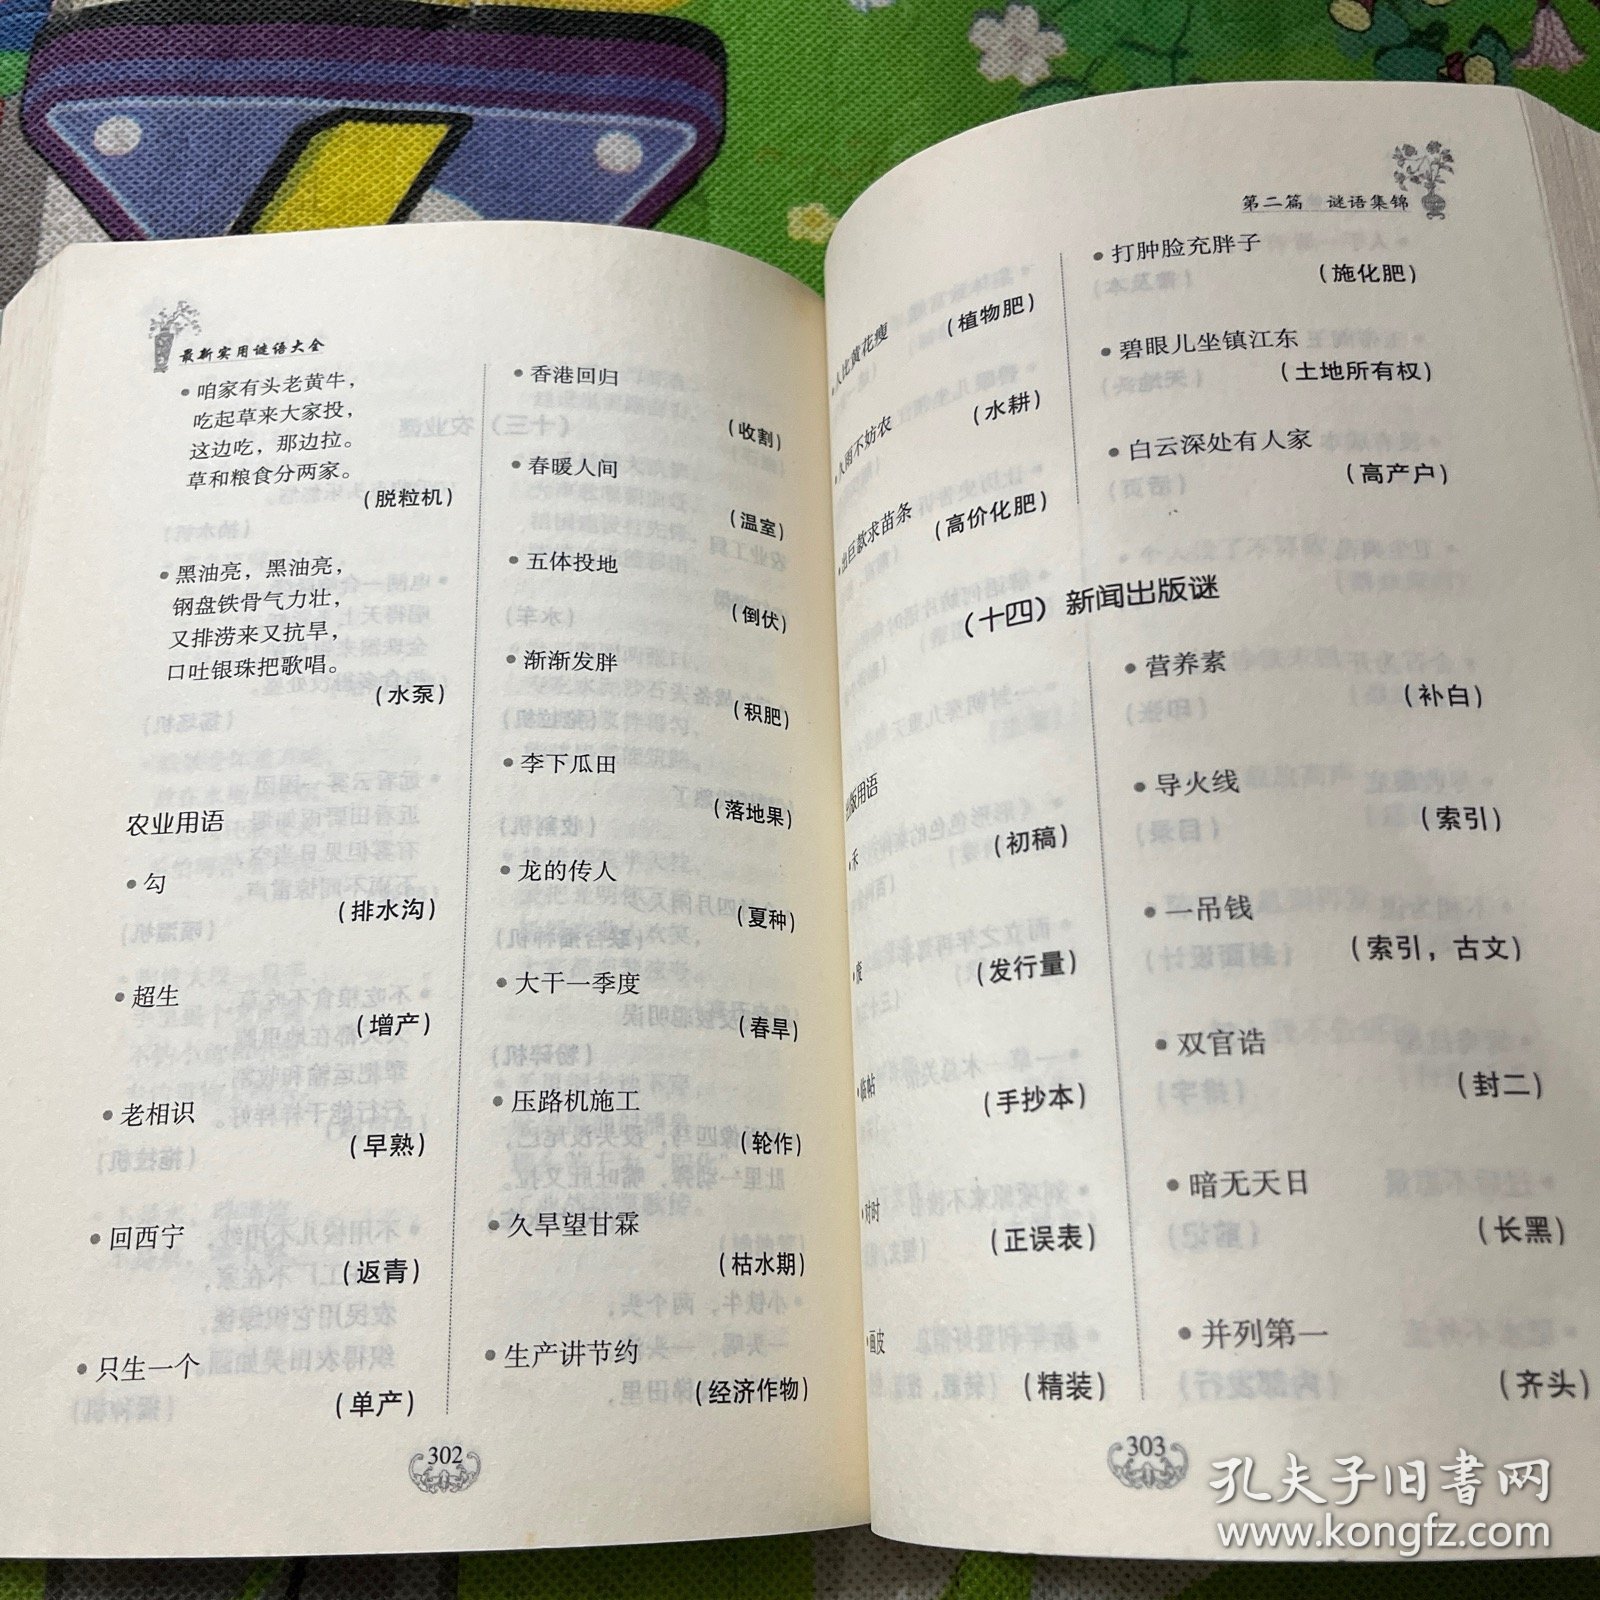 最新实用谜语大全
咱家有头老黄牛，
吃起草来大家投，
这边吃，那边拉。
草和粮食分两家。
（脱粒机）
黑油亮，黑油亮，
钢盘铁骨气力壮，
又排涝来又抗旱，
口吐银珠把歌唱。
（水泵）
农业用语
勾
（排水沟）
超生
（增产）
老相识
（早熟）
回西宁
（返青）
只生一个
（单产）
香港回归
（收割）
春暖人间
（温室）
五体投地
（倒伏）
渐渐发胖
（积肥）
李下瓜田
（落地果）
龙的传人
（夏种）
大干一季度
（春旱）
压路机施工
（轮作）
久旱望甘霖
（枯水期）
生产讲节约
（经济作物）
302
第二篇 谜语集锦
人比黄花瘦
（植物肥）
雨不妨农
（水耕）
出巨款求苗条
（高价化肥）
打肿脸充胖子
（施化肥）
碧眼儿坐镇江东
（土地所有权）
白云深处有人家
（高产户）
（十四）新闻出版谜
版用语
禾
（初稿）
（发行量）
临帖
（手抄本）
对时
（正误表）
画皮
（精装）
营养素
（补白）
导火线
（索引）
一吊钱
（索引，古文）
双官诰
（封二）
暗无天日
（长黑）
并列第一
（齐头）
303
孔夫子旧书网
www.kongfz.com